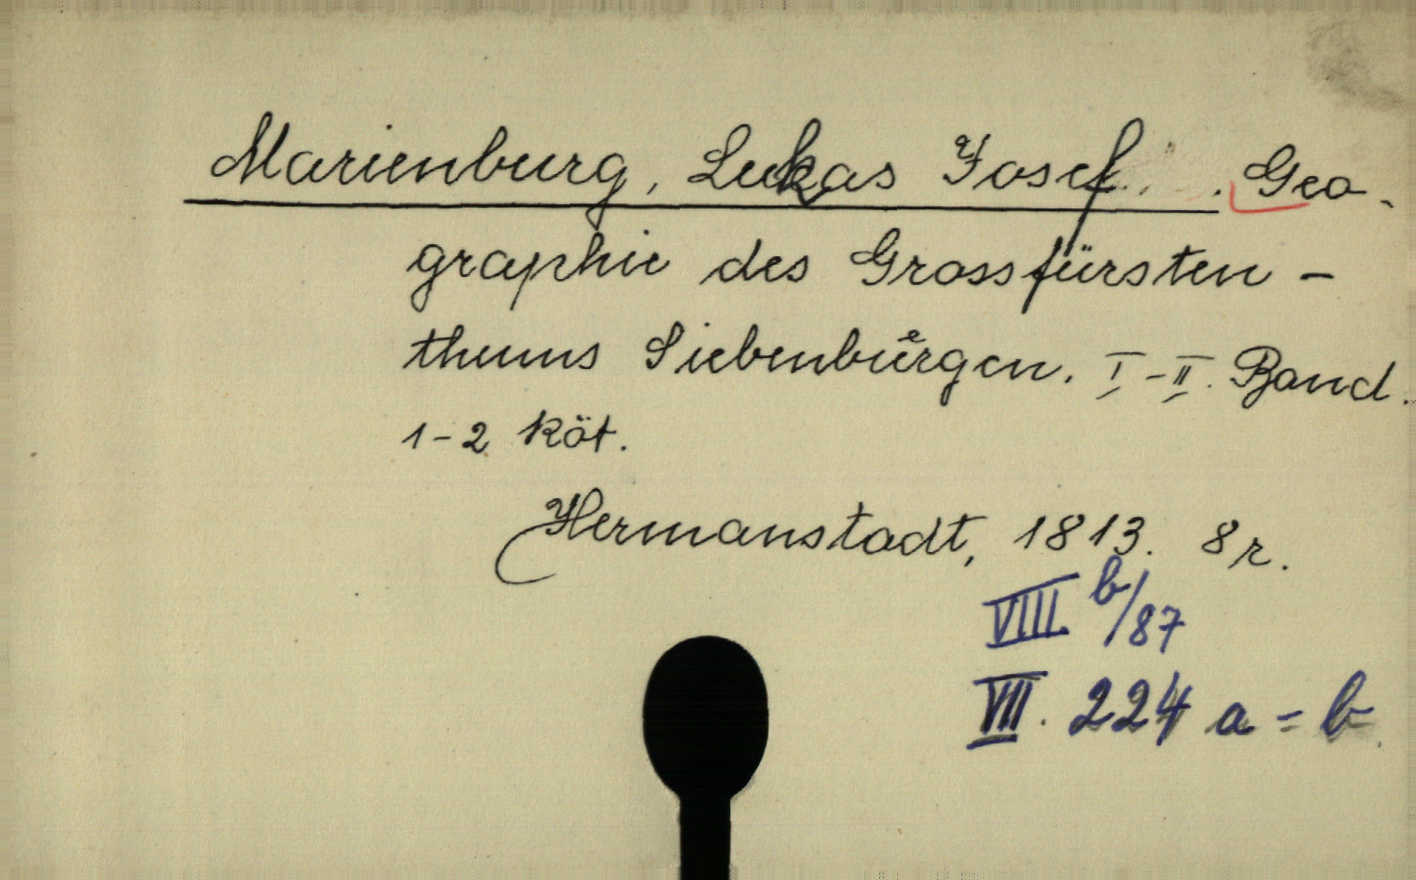 Marienburg, Lukas Josef. Geo-
graphie des Grossfürsten-
thums Siebenbürgen. I-II. Band.
1-2 köt.
Hermanstadt, 1813. 8 r.
VIII b/87
VII. 224 a=b